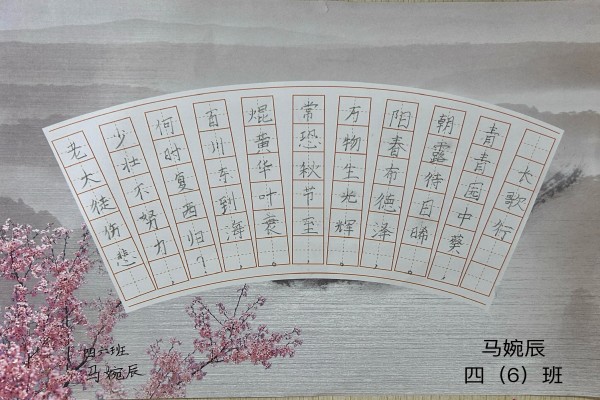 长歌行
青青园中葵，
朝露待日晞。
阳春布德泽，
万物生光辉。
常恐秋节至，
焜黄华叶衰。
百川东到海，
何时复西归？
少壮不努力，
老大徒伤悲。
四六班
马婉辰
马婉辰
四（6）班